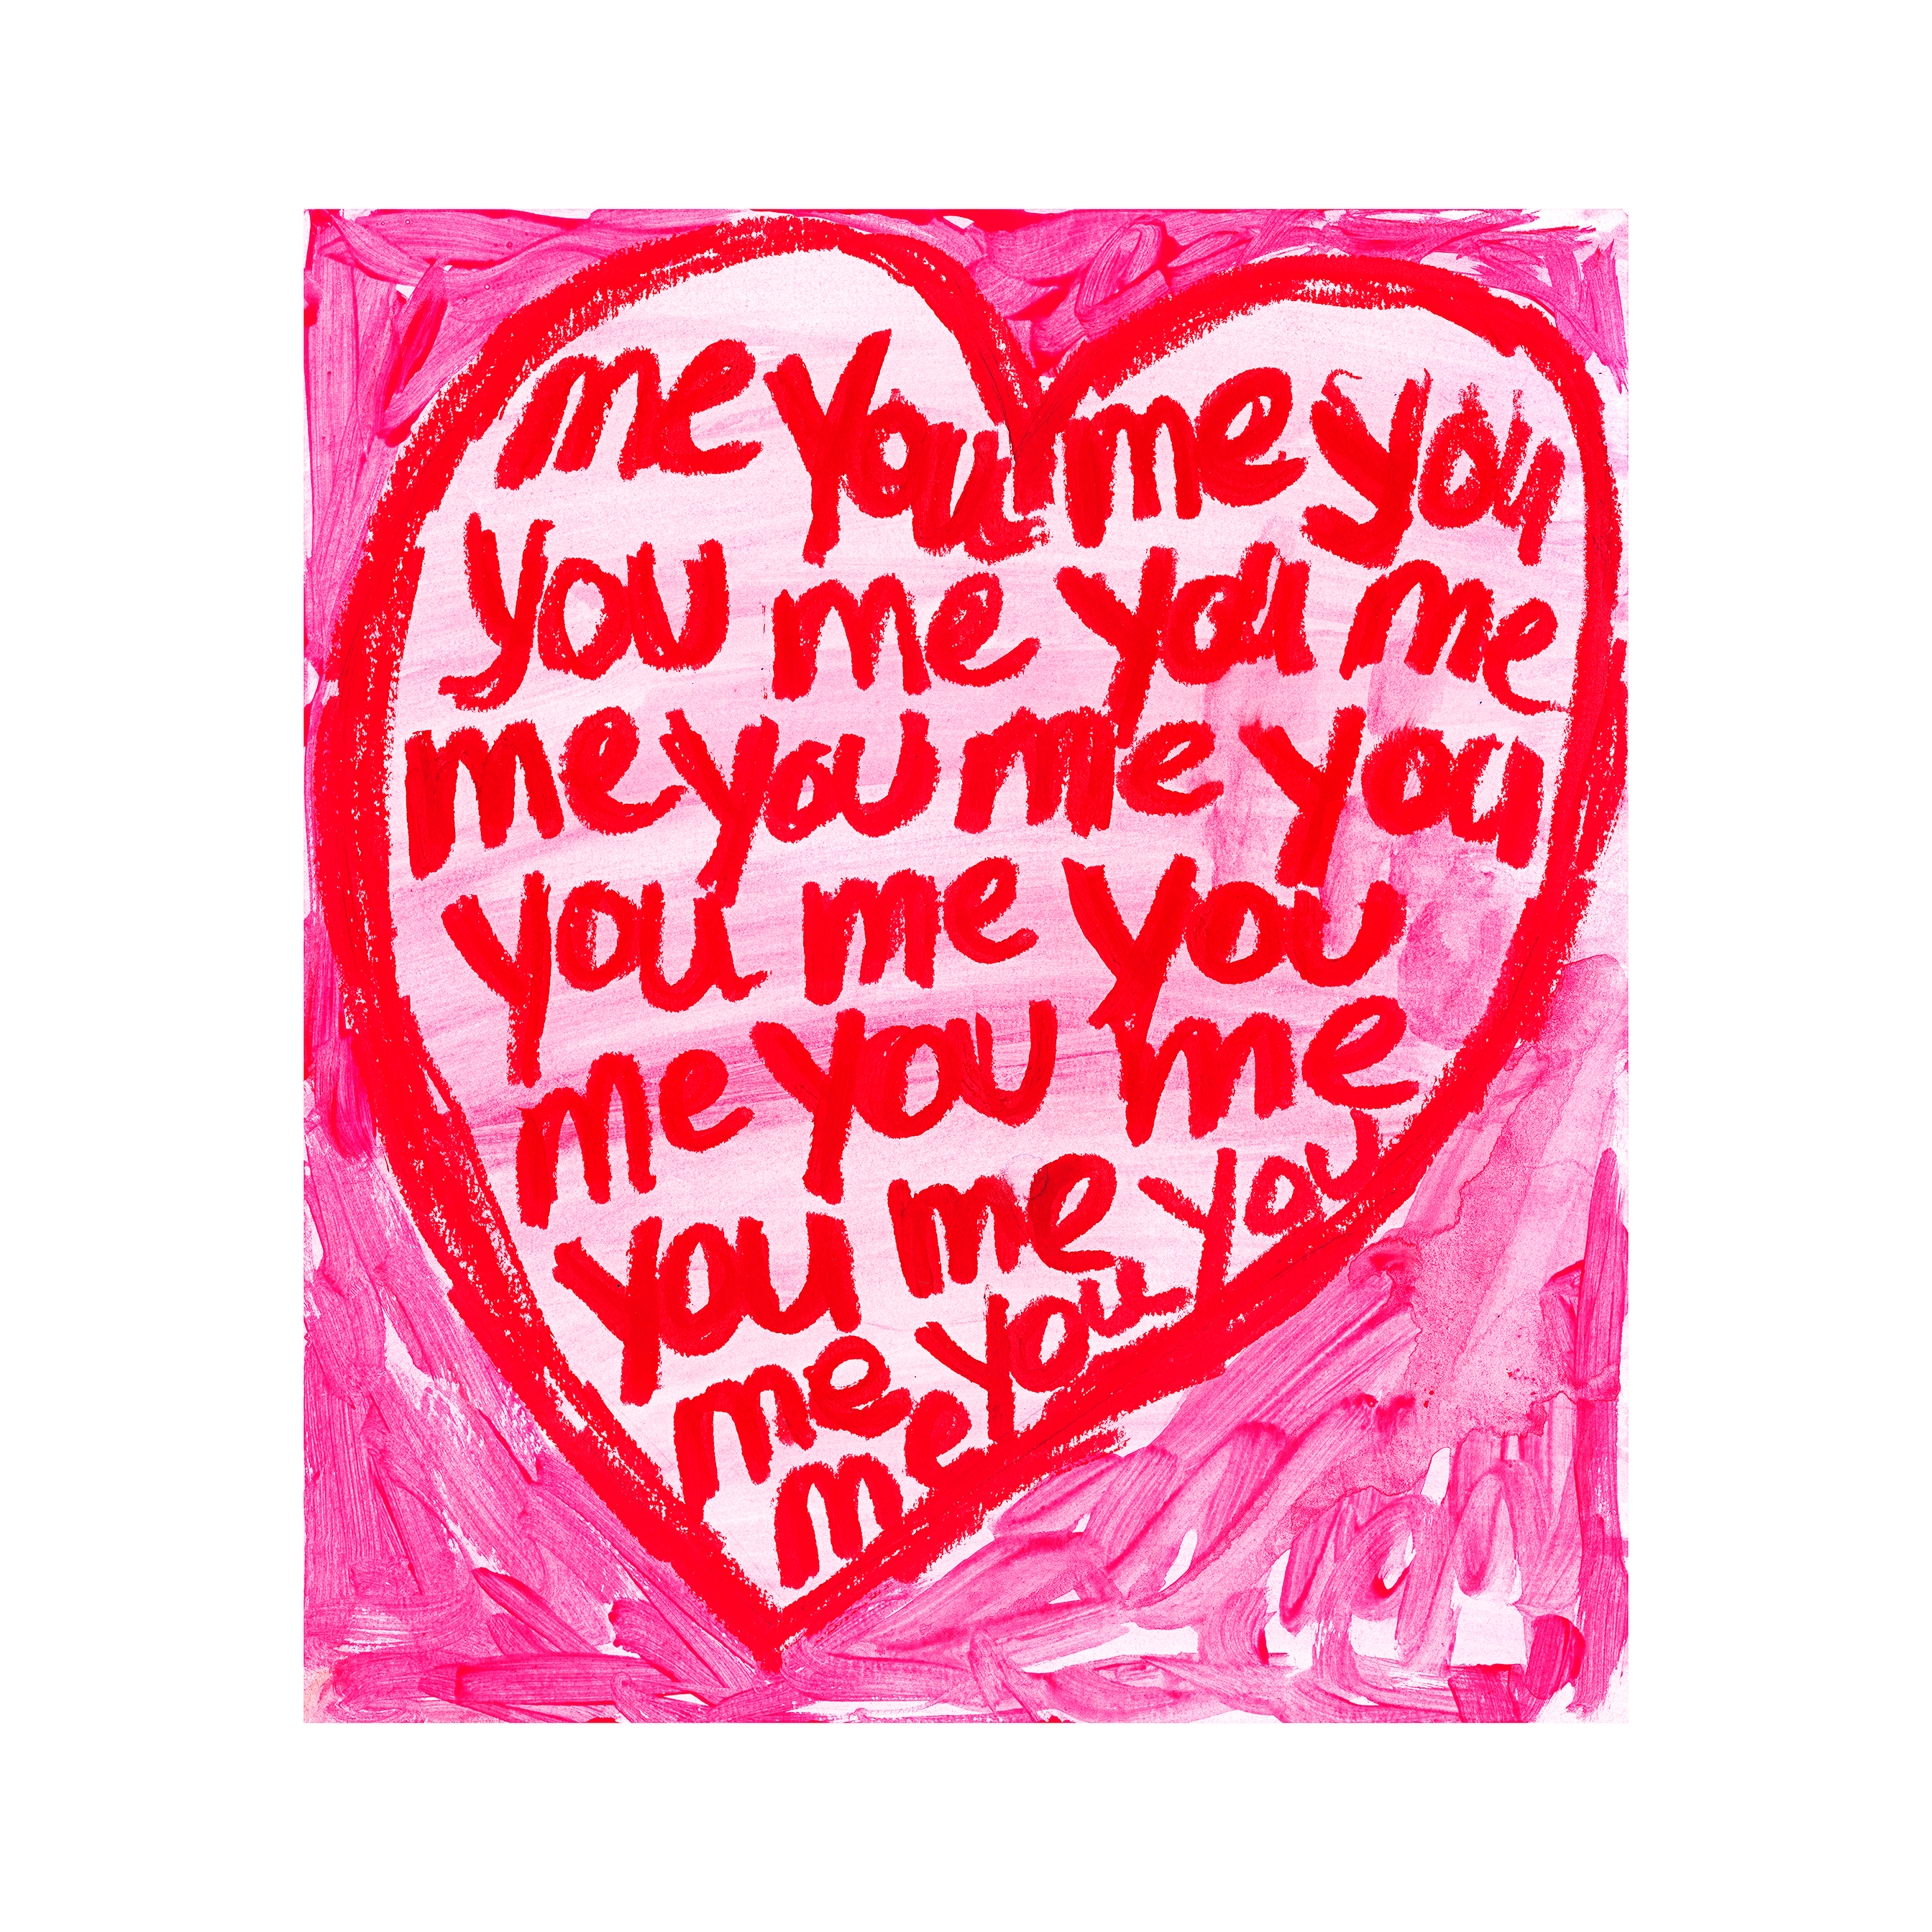 me you me you
you me you me
me you me you
you me you
me you me
you me you
me you
me